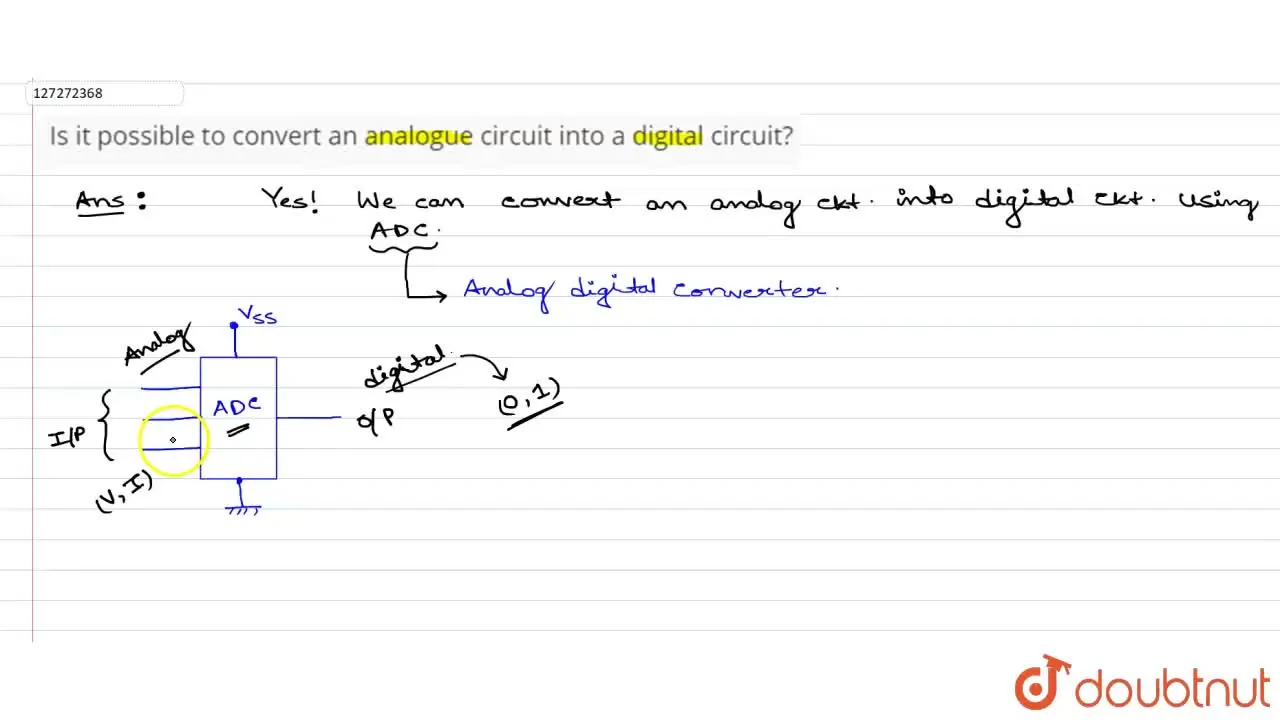 127272368
Is it possible to convert an analogue circuit into a digital circuit?
Ans : Yes! We can convert an analog ckt. into digital ckt. using
ADC.
Analog digital converter.
VSS
Analog
digital.
ADC
(0, 1)
O/P
I/P
(V, I)
doubtnut